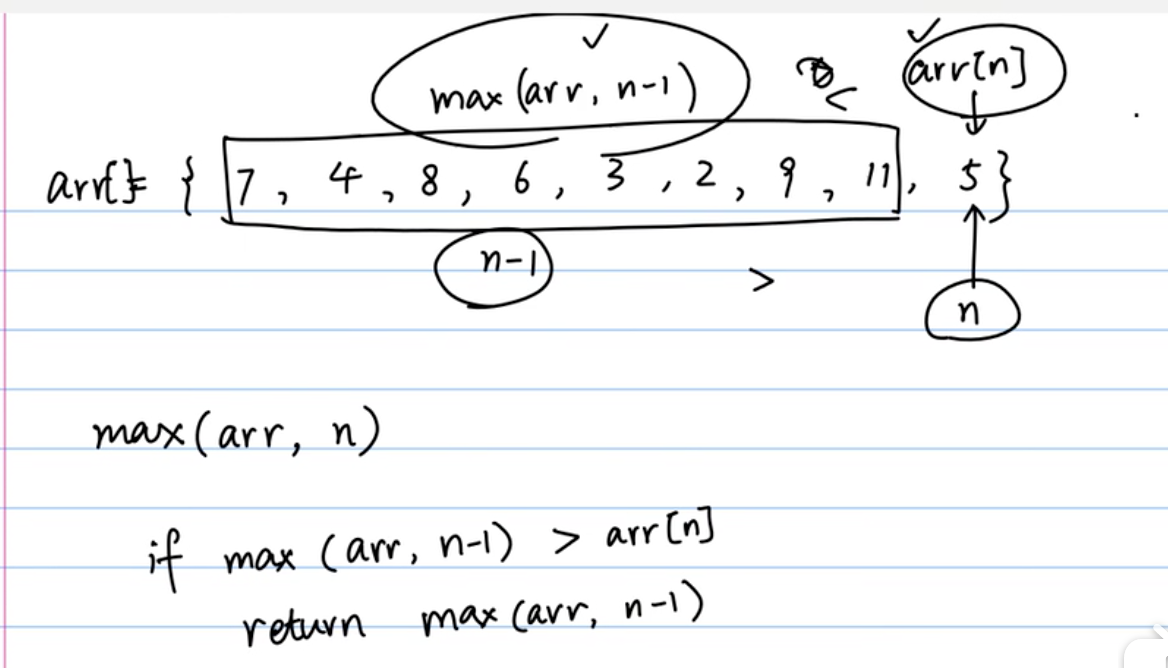 max (arr, n-1) arr[n]
<
arr[]= { 7, 4, 8, 6, 3, 2, 9, 11, 5}
n-1
>
n
max(arr, n)
if max (arr, n-1) > arr[n]
return max (arr, n-1)